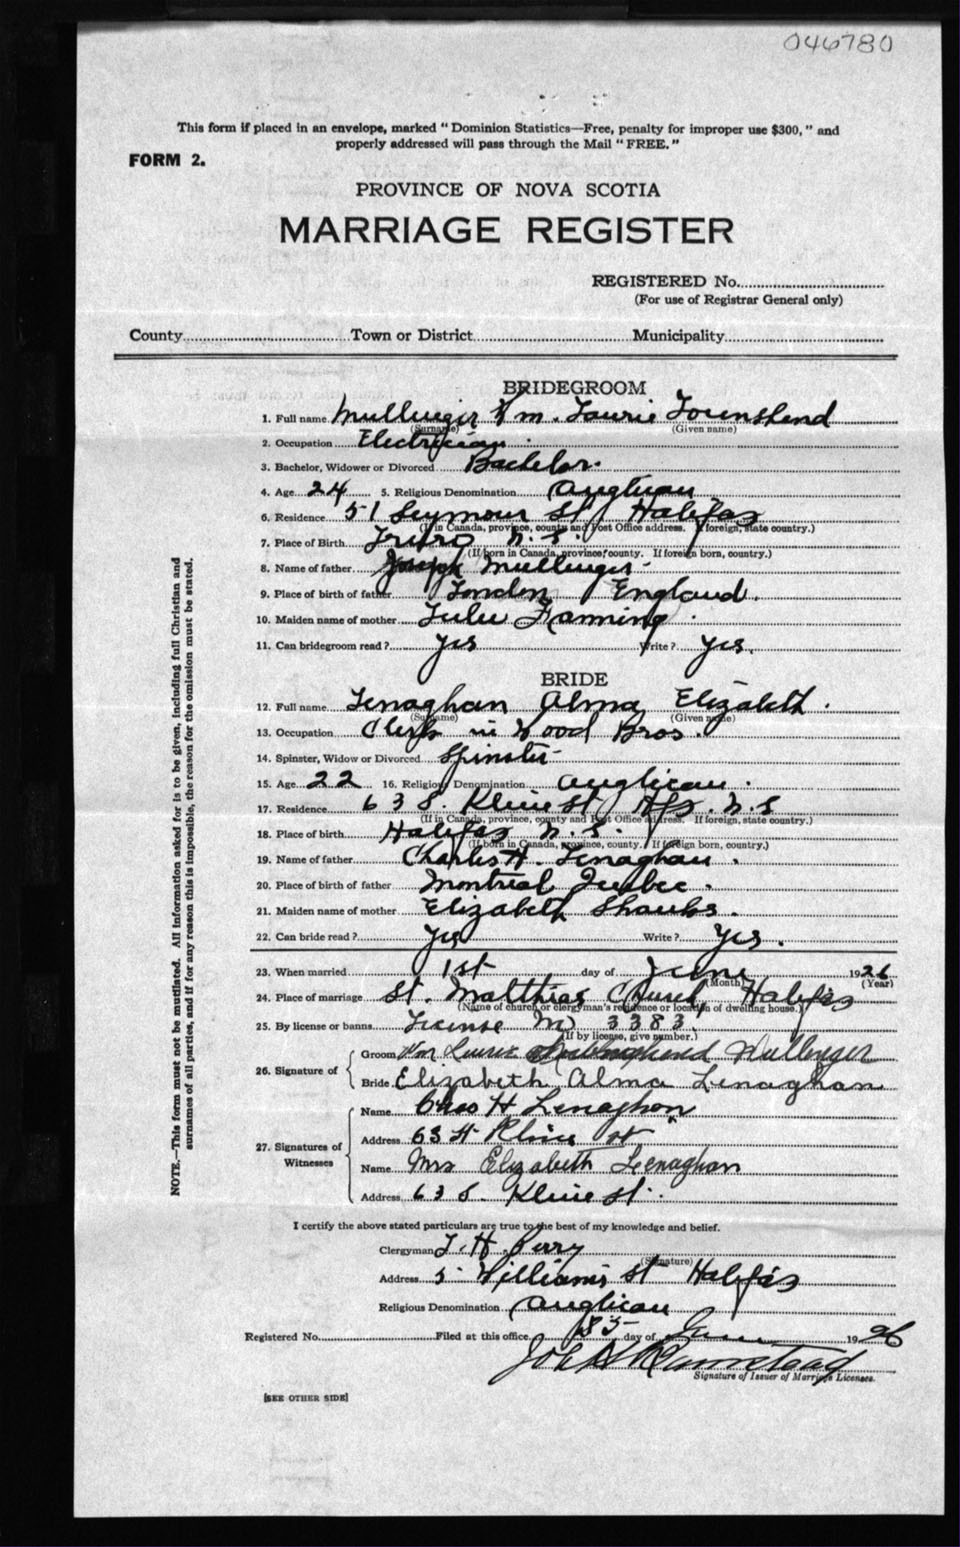 046780
This form if placed in an envelope, marked "Dominion Statistics—Free, penalty for improper use $300," and
properly addressed will pass through the Mail "FREE."
FORM 2.
PROVINCE OF NOVA SCOTIA
MARRIAGE REGISTER
REGISTERED No.
(For use of Registrar General only)
County Town or District Municipality
BRIDEGROOM
1. Full name Mullinger Wm. Laurie Townshend
(Surname) (Given name)
2. Occupation Electrician
3. Bachelor, Widower or Divorced Bachelor.
4. Age 24 5. Religious Denomination Anglican
6. Residence 51 Seymour St Halifax
(If in Canada, province, county and Post Office address. If foreign, state country.)
7. Place of Birth Truro N.S.
(If born in Canada, province, county. If foreign born, country.)
8. Name of father Joseph Mullinger
9. Place of birth of father London England.
10. Maiden name of mother Lulu
11. Can bridegroom read? Yes Write? Yes.
BRIDE
12. Full name Lenaghan Alma Elizabeth.
(Surname) (Given name)
13. Occupation Clerk in Wood Bros.
14. Spinster, Widow or Divorced Spinster
15. Age 22 16. Religious Denomination Anglican.
17. Residence 63 S. Kline St Hfx. N.S
(If in Canada, province, county and Post Office address. If foreign, state country.)
18. Place of birth Halifax N.S.
(If born in Canada, province, county. If foreign born, country.)
19. Name of father Charles H. Lenaghan.
20. Place of birth of father Montreal Quebec.
21. Maiden name of mother Elizabeth Shanks.
22. Can bride read? Yes Write? Yes.
23. When married 1st day of June 1926
(Month) (Year)
24. Place of marriage St. Matthias Church, Halifax
(Name of church or clergyman's residence or location of dwelling house.)
25. By license or banns License No 3383
(If by license, give number.)
26. Signature of
Groom Wm Laurie Townshend Mullinger
Bride Elizabeth Alma Lenaghan
27. Signatures of Witnesses
Name Chas H Lenaghan
Address 63 Kline St
Name Mrs Elizabeth Lenaghan
Address 63 S. Kline St.
I certify the above stated particulars are true to the best of my knowledge and belief.
Clergyman T. H. Perry
(Signature)
Address 5 Williams St Halifax
Religious Denomination Anglican
Registered No. Filed at this office day of June 1926
Signature of Issuer of Marriage Licenses.
[SEE OTHER SIDE]
NOTE.—This form must not be mutilated. All information asked for is to be given, including full Christian and
surnames of all parties, and if for any reason this is impossible, the reason for the omission must be stated.